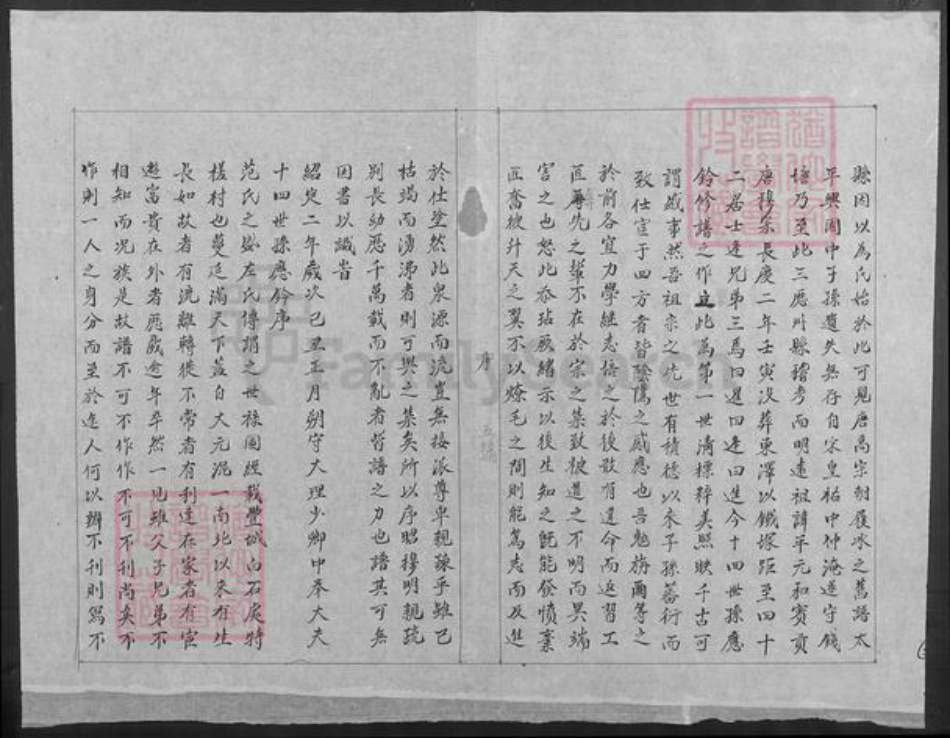 縣因以為氏始於此可見唐高宗時履冰之舊譜太
平興國中子孫遺失無存自宋皇祐中仲淹遂守錢
塘乃至此三歷州縣稽考而明遠祖諱平元和賓貢
唐穆宗長慶二年壬寅沒葬東澤以鐵塚距至四十
二居士逢兄弟三焉曰暹曰逢曰進今十四世孫應
鈴修譜之作立此為第一世清標粹美照映千古可
謂盛事然吾祖宗之先世有積德以來子孫蕃衍而
致仕宦于四方者皆陰隲之感應也吾勉旃爾等之
於前各宜力學繼志悟之於後敢有違命而返習工
匠辱先之輩不在於宗之集致被道之不明而異端
害之也恕此忝玷厥緒示以後生知之既能發憤棄
匠奮彼升天之翼不以燎毛之間則能篤志而及進
序
五
於仕塗然此泉源而流豈無接派尊卑親疎乎雖已
枯竭而湧沸者則可與之集矣所以序昭穆明親疏
別長幼歷千萬載而不亂者皆譜之力也譜其可無
因書以識旹
紹定二年歲次己丑正月朔守大理少卿中奉大夫
十四世孫應鈴序
范氏之盛左氏傳謂之世祿圖經載豐城白石
槎村也蔓延滿天下蓋自大元混一南北以來有生
長如故者有流離轉徙不常者有利達在家者有宦
遊富貴在外者歷歲逾年卒然一見雖父子兄弟不
相知而況族是故譜不可不作作不可不刊尚矣不
作則一人之身分而至於途人何以辦不刊則寫不
FamilySearch